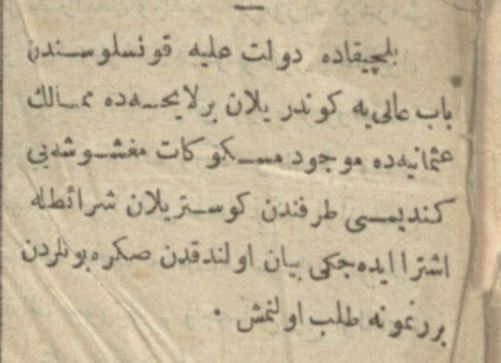 بلجیقاده دولت علیه قونسلوسندن
باب عالی‌یه کوندریلان برلایحه‌ده ممالك
عثمانیه‌ده موجود مسکوکات مغشوشه‌یی
کندیسی طرفندن کوستریلان شرائطله
اشترا ایده‌جکی بیان اولندقدن صکره بونلردن
بررنمونه طلب اولنمش .